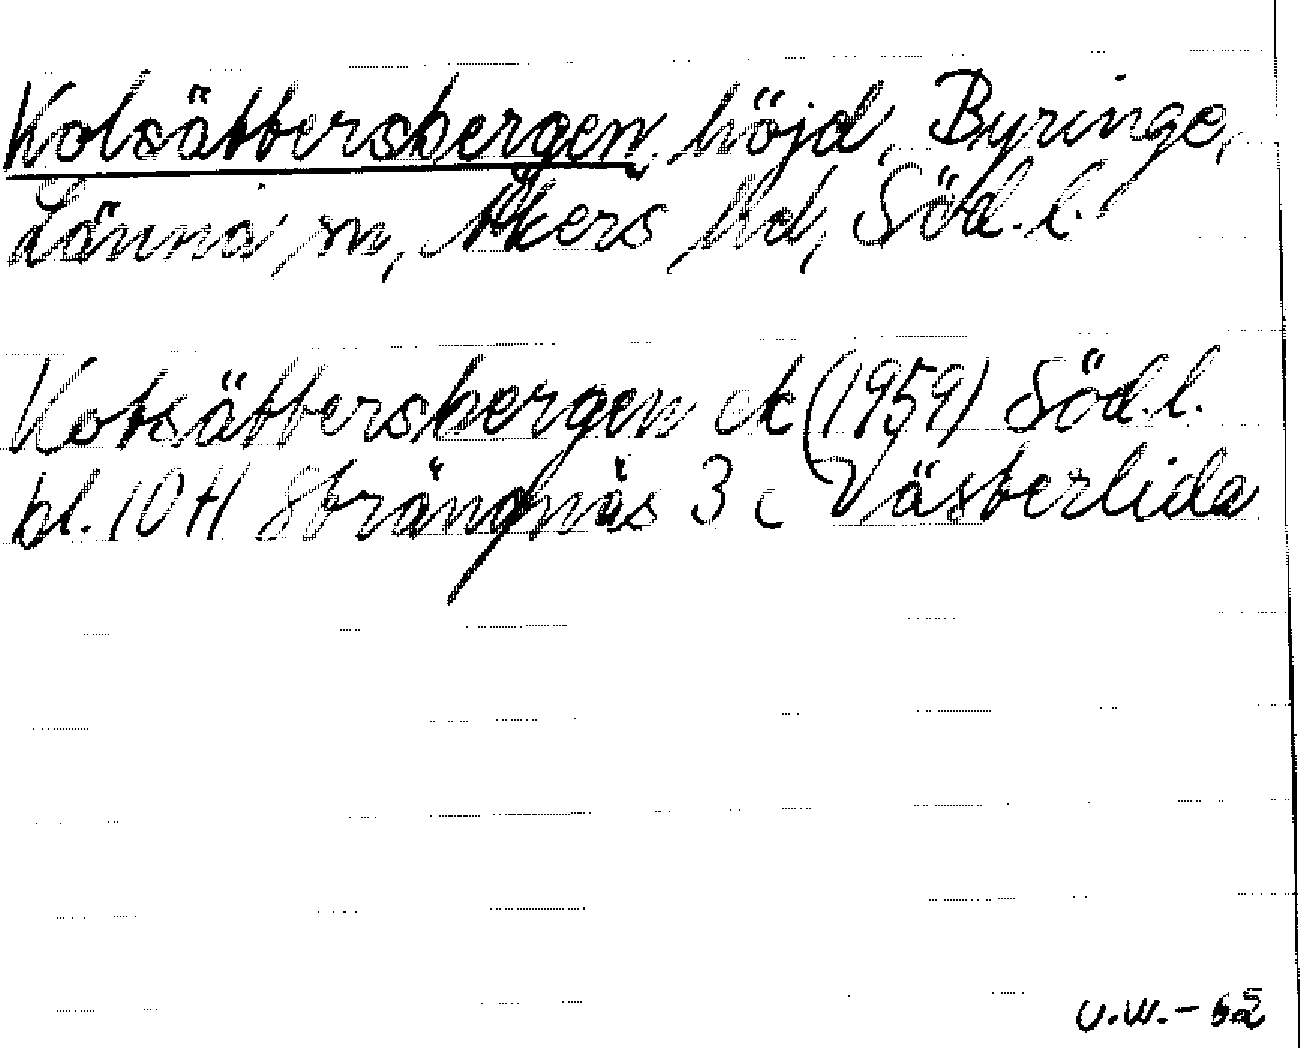 Kolsättersbergen, höjd, Byringe,
Länna sn, Åkers hd, Söd. l.
Kolsättersbergen ek (1959) Söd. l.
bl. 10 H Strängnäs 3 c Västerlida